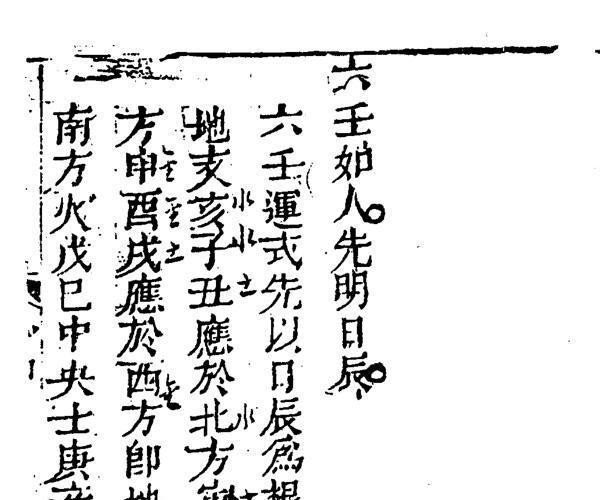 六壬如人先明日辰
六壬運式先以日辰爲根
地支亥水子水丑土應於北方水
方申金酉金戌土應於西金方即地
南方火戊巳中央士庚